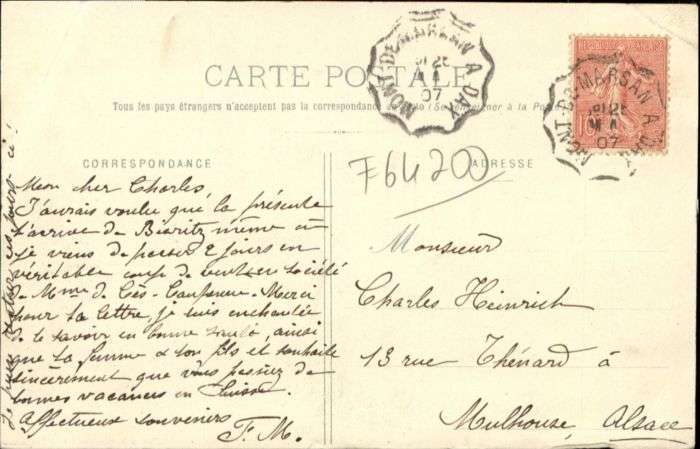 CARTE POSTALE
Tous les pays étrangers n'acceptent pas la correspondance au recto (Se renseigner à la Poste)
CORRESPONDANCE
ADRESSE
MONT-DE-MARSAN A DAX
07
MONT-DE-MARSAN A DAX
07
F6420
Mon cher Charles,
J'aurais voulu que la présente
t'arrive de Biaritz même où
je viens de passer 2 jours en
véritable coup de vent en société
de Mme de Cès-Caupenne. Merci
pour ta lettre, je suis enchantée
de te savoir en bonne santé, ainsi
que ta femme & ton fils et souhaite
sincèrement que vous passiez de
bonnes vacances en Suisse.
Affectueux souvenirs
F. M.
Monsieur
Charles Heinrich
13 rue Thénard à
Mulhouse, Alsace